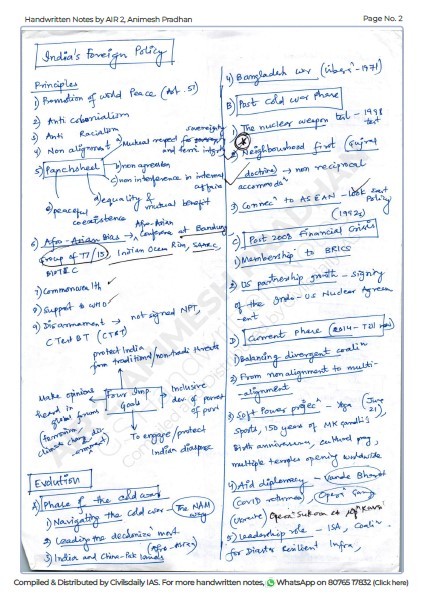 Handwritten Notes by AIR 2, Animesh Pradhan
Page No. 2
India's Foreign Policy
Principles
1) Promotion of world Peace (Art. 51)
2) Anti colonialism
3) Anti Racialism
4) Non alignment
5) Panchsheel
a) Mutual respect for sovereignty
and terri integ
b) non agression
c) non interference in internal
affairs
d) equality &
mutual benefit
e) peaceful
coexistence
6) Afro-Asian Bias → Afro-Asian
Conference at Bandung
Group of 77/15), Indian Ocean Rim, SAARC,
BIMSTEC
7) Commonwealth
8) Support to UNO
9) Disarmament → not signed NPT,
CTBT (CTBT)
protect India
from traditional/nontradi threats
Make opinions
heard in
global forum
(terrorism,
climate chang, dis-
armament)
Four Imp.
Goals
Inclusive
dev of parent
of port
To engage/protect
Indian diaspora
Evolution
A) Phase of the cold war
1) Navigating the cold war - The NAM
way
2) Leading the decloniza" movt
(Afro-Asian)
3) India and China-Pak
4) Bangladesh war (liberⁿ-1971)
B) Post cold war phase
1) The nuclear weapon test - 1998
test
2) Neighbourhood first (Gujral
doctrine) → non reciprocal
accommodaⁿ
3) Connecⁿ to ASEAN - look East
Policy
(1992)
C) Post 2008 Financial Crisis
1) Membership to BRICS
2) US partnership growth - signing
of the Indo-US Nuclear Agreem
-ent
D) Current phase (2014 - Till now)
1) Balancing divergent coalin
2) From non alignment to multi-
-alignment
3) Soft Power projecⁿ - Yoga (June
21),
sports, 150 years of MK Gandhi's
Birth anniversary, cultural prog,
multiple temples opening worldwide
4) Aid diplomacy - Vande Bharat
(COVID returnees), Operⁿ Ganga
(Ukraine) Operⁿ Sukoon et Operⁿ Kaveri
5) Leadership role - ISA, Coaliⁿ
for Disaster Resilient Infra,
Compiled & Distributed by Civilsdaily IAS. For more handwritten notes, WhatsApp on 80765 17832 (Click here)